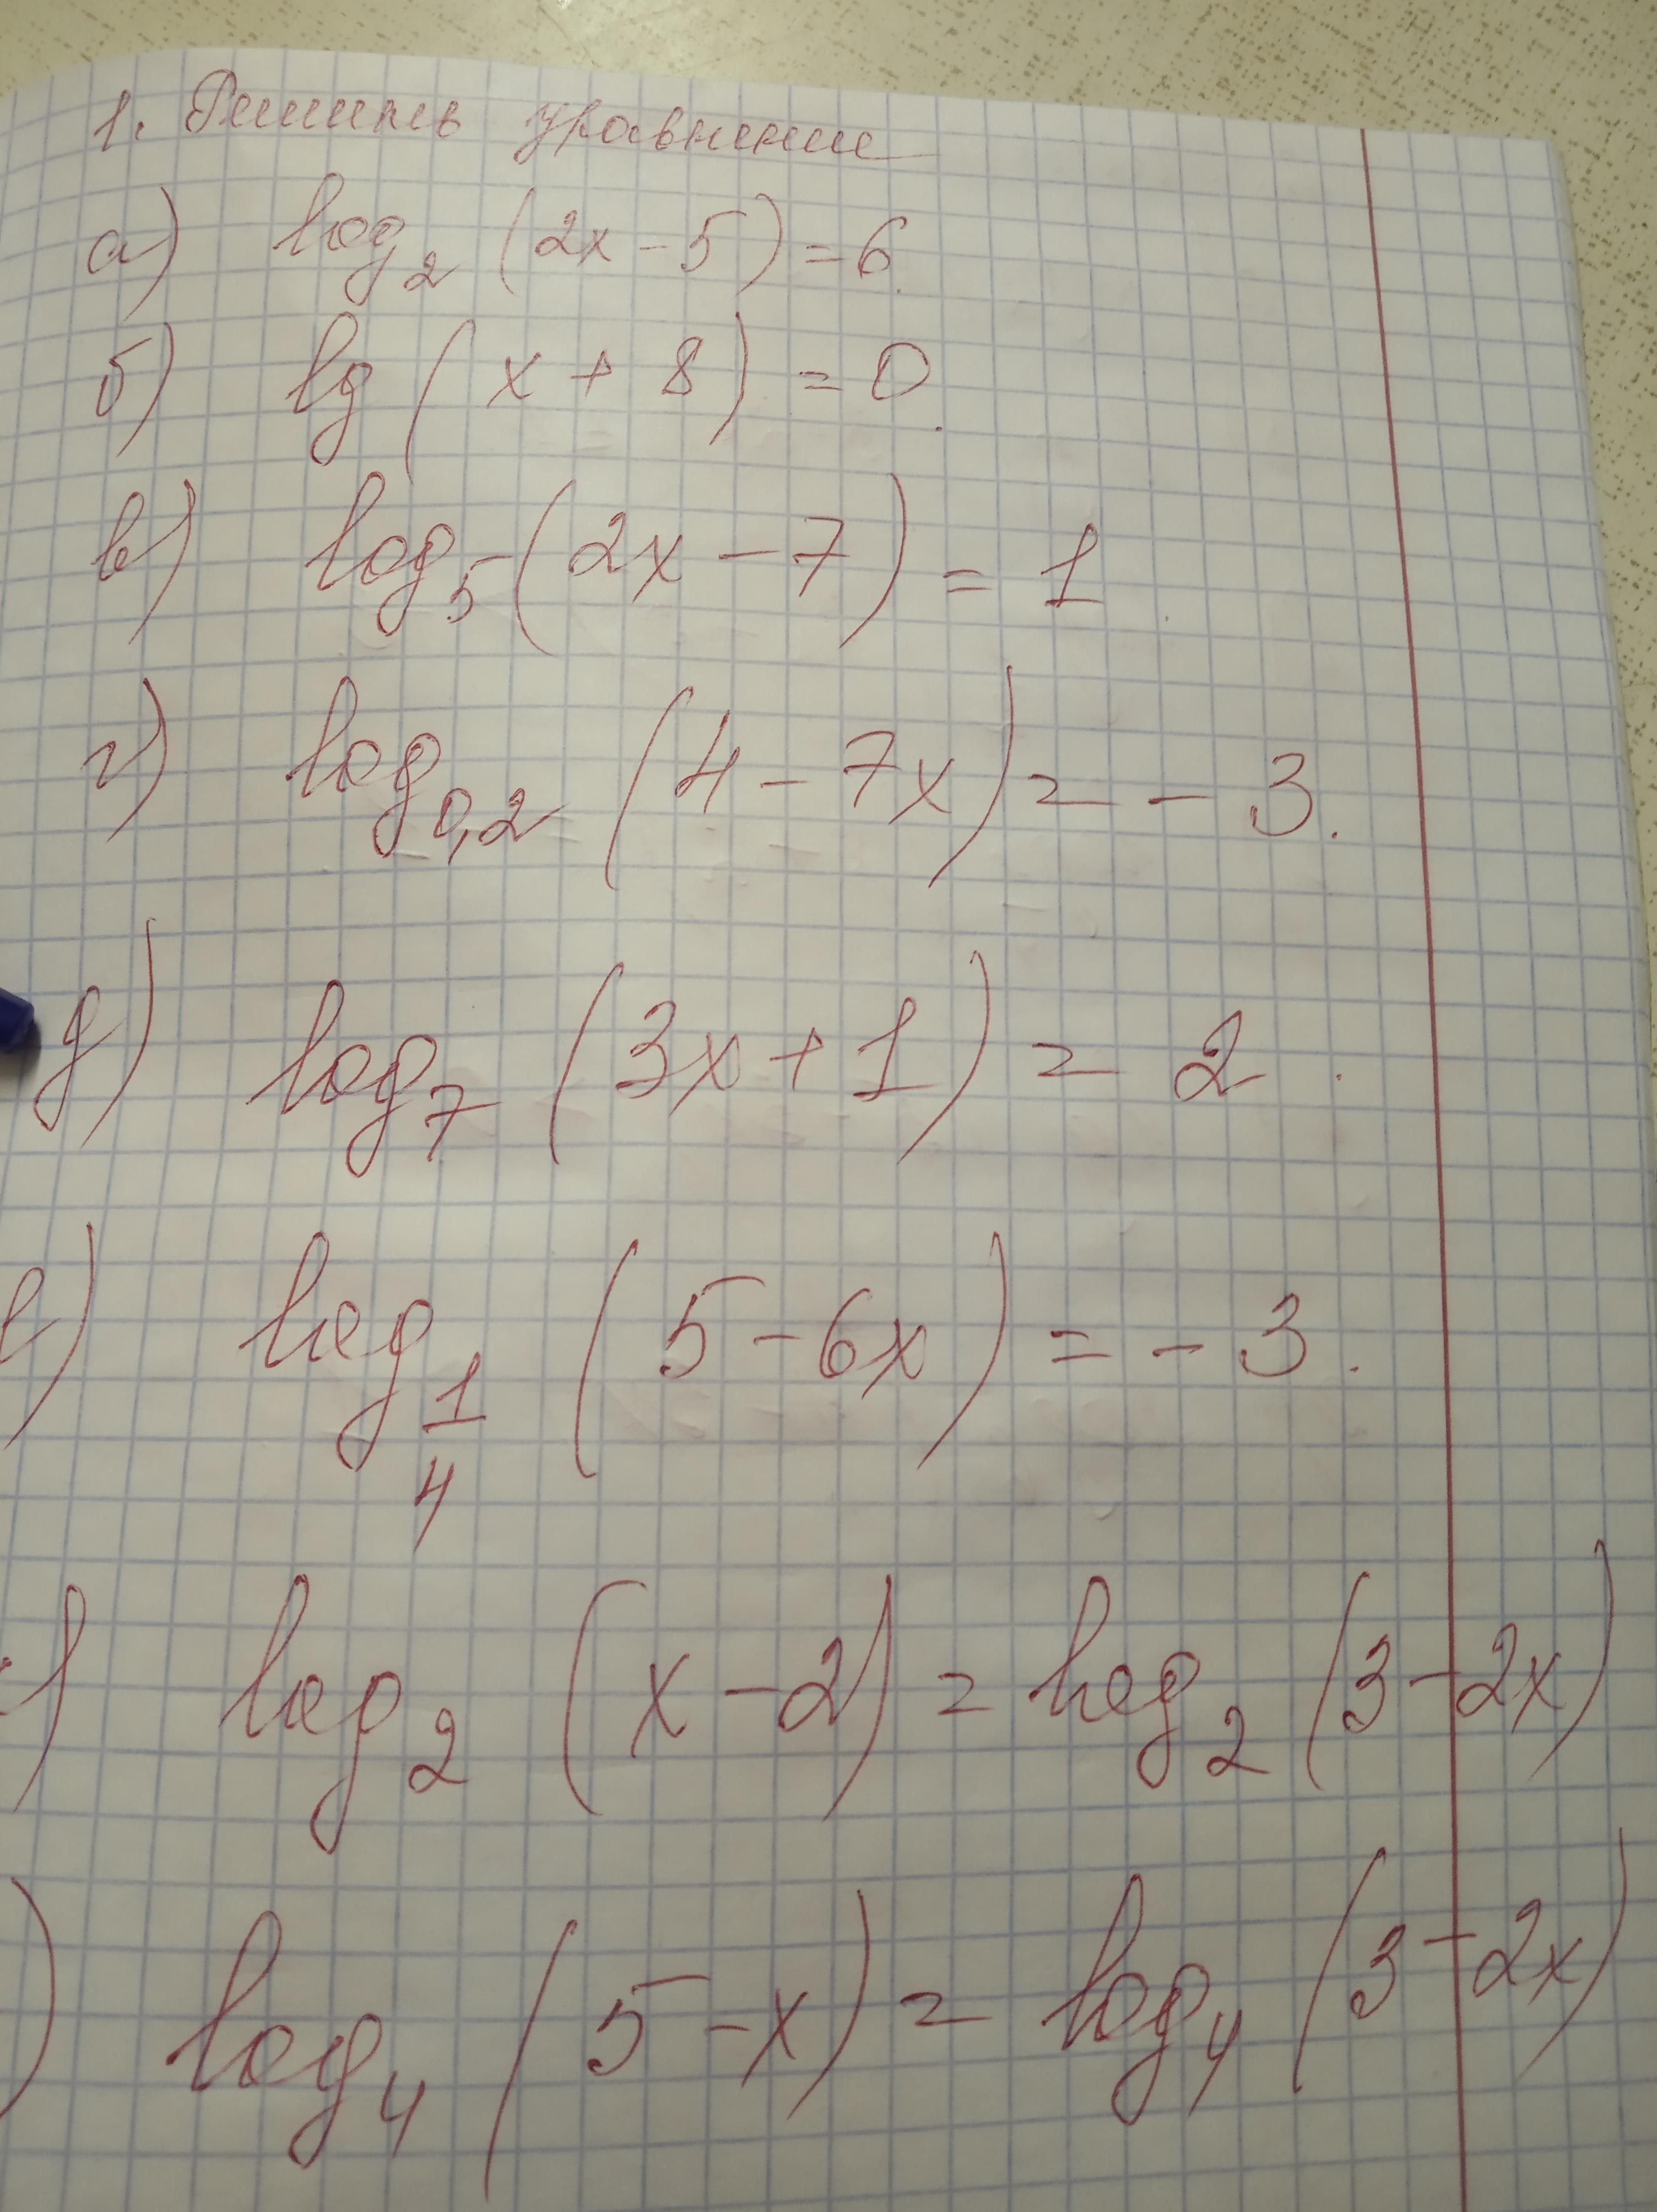 1. Решить уравнение
а) log₂ (2x - 5) = 6.
б) lg (x + 8) = 0.
в) log₅ (2x - 7) = 1.
г) log₀,₂ (4 - 7x) = - 3.
д) log₇ (3x + 1) = 2.
е) log 1/4 (5 - 6x) = - 3.
) log₂ (x - 2) = log₂ (3 - 2x)
) log₄ (5 - x) = log₄ (3 - 2x)